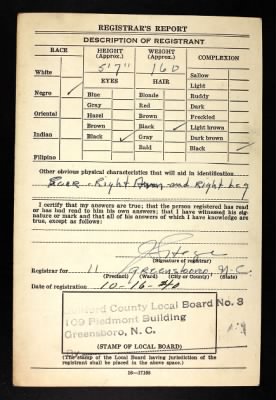 REGISTRAR'S REPORT
DESCRIPTION OF REGISTRANT
RACE HEIGHT (Approx.) WEIGHT (Approx.) COMPLEXION
5'7" 160
White Sallow
EYES HAIR Light
Negro ✓ Blue Blonde Ruddy
Gray Red Dark
Oriental Hazel Brown Freckled
Brown Black ✓ Light brown
Indian Black ✓ Gray Dark brown
Bald Black
Filipino
Other obvious physical characteristics that will aid in identification
Scar - Right Arm and Right Leg
I certify that my answers are true; that the person registered has read
or has had read to him his own answers; that I have witnessed his sig-
nature or mark and that all of his answers of which I have knowledge
are true, except as follows:
(Signature of registrar)
Registrar for 11 Greensboro, N.C.
(Precinct) (Ward) (City or County) (State)
Date of registration 10-16-40
Guilford County Local Board No. 3
109 Piedmont Building
Greensboro, N. C.
(STAMP OF LOCAL BOARD)
(The stamp of the Local Board having jurisdiction of the registrant
shall be placed in the above space.)
16-17105